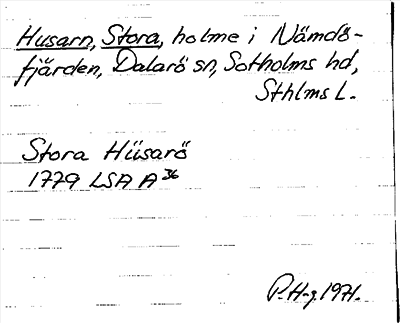 Husarn, Stora, holme i Nämdö-
fjärden, Dalarö sn, Sotholms hd,
Sthlms L.
Stora Hüsarö
1779 LSA A 36
P.H-g. 1971.